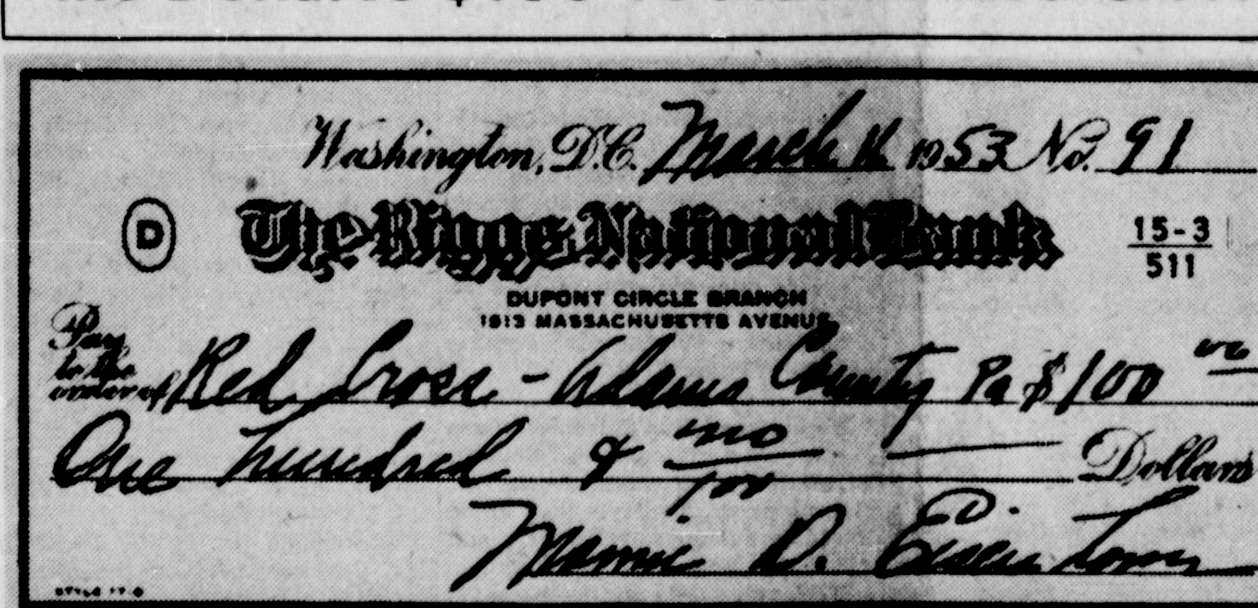 Washington, D.C. March 16 1953 No. 91
D The Riggs National Bank 15-3
511
DUPONT CIRCLE BRANCH
1913 MASSACHUSETTS AVENUE
Pay
to the
order of Red Cross - Adams County Pa $100 no
One hundred & no/100 Dollars
Mamie D. Eisenhower